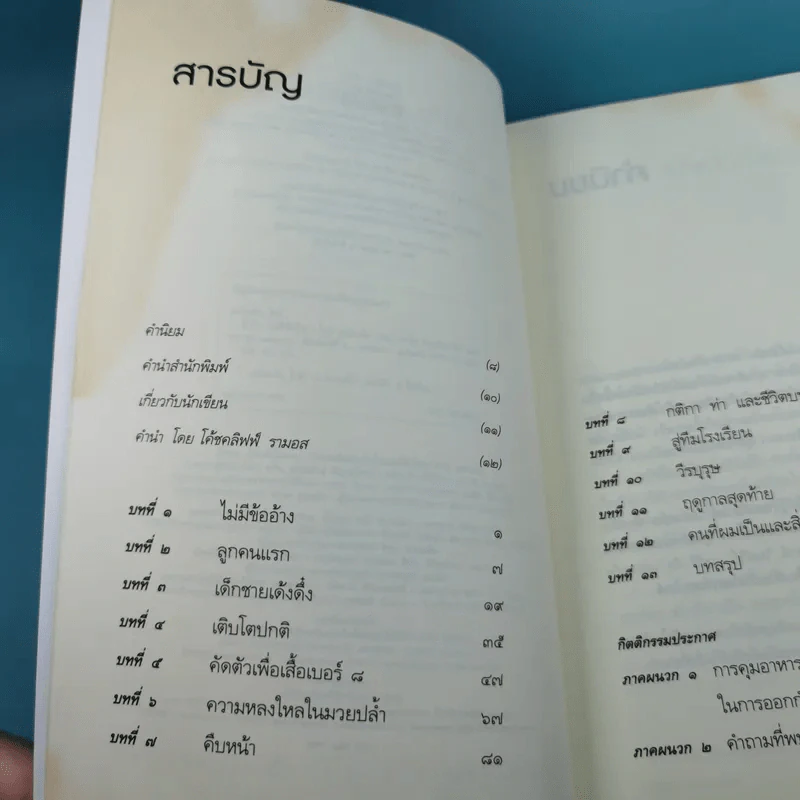 สารบัญ
คำนิยม (๘)
คำนำสำนักพิมพ์ (๑๐)
เกี่ยวกับนักเขียน (๑๑)
คำนำ โดย โค้ชคลิฟฟ์ รามอส (๑๒)
บทที่ ๑ ไม่มีข้ออ้าง ๑
บทที่ ๒ ลูกคนแรก ๗
บทที่ ๓ เด็กชายเด้งดึ๋ง ๑๙
บทที่ ๔ เติบโตปกติ ๓๕
บทที่ ๕ คัดตัวเพื่อเสื้อเบอร์ ๘ ๔๗
บทที่ ๖ ความหลงใหลในมวยปล้ำ ๖๗
บทที่ ๗ คืบหน้า ๘๑
บทที่ ๘ กติกา ท่า และชีวิตบน
บทที่ ๙ สู่ทีมโรงเรียน
บทที่ ๑๐ วีรบุรุษ
บทที่ ๑๑ ฤดูกาลสุดท้าย
บทที่ ๑๒ คนที่ผมเป็นและสิ่
บทที่ ๑๓ บทสรุป
กิตติกรรมประกาศ
ภาคผนวก ๑ การคุมอาหาร
ในการออกกำ
ภาคผนวก ๒ คำถามที่พบ